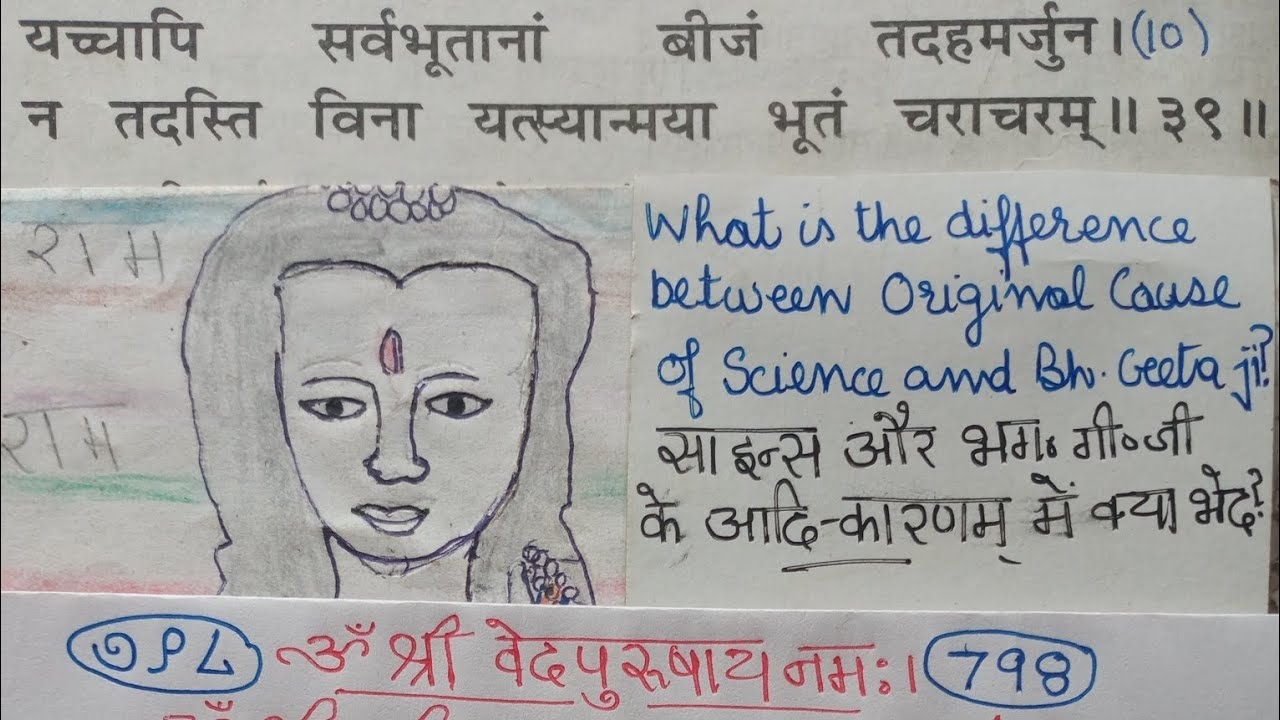 यच्चापि सर्वभूतानां बीजं तदहमर्जुन। (10)
न तदस्ति विना यत्स्यान्मया भूतं चराचरम्॥ ३९॥
राम
राम
What is the difference
between Original Cause
of Science and Bh. Geeta ji?
साइन्स और भग॰ गी॰जी
के आदि-कारणम् में क्या भेद?
७९८ ॐ श्री वेदपुरुषाय नमः। 798